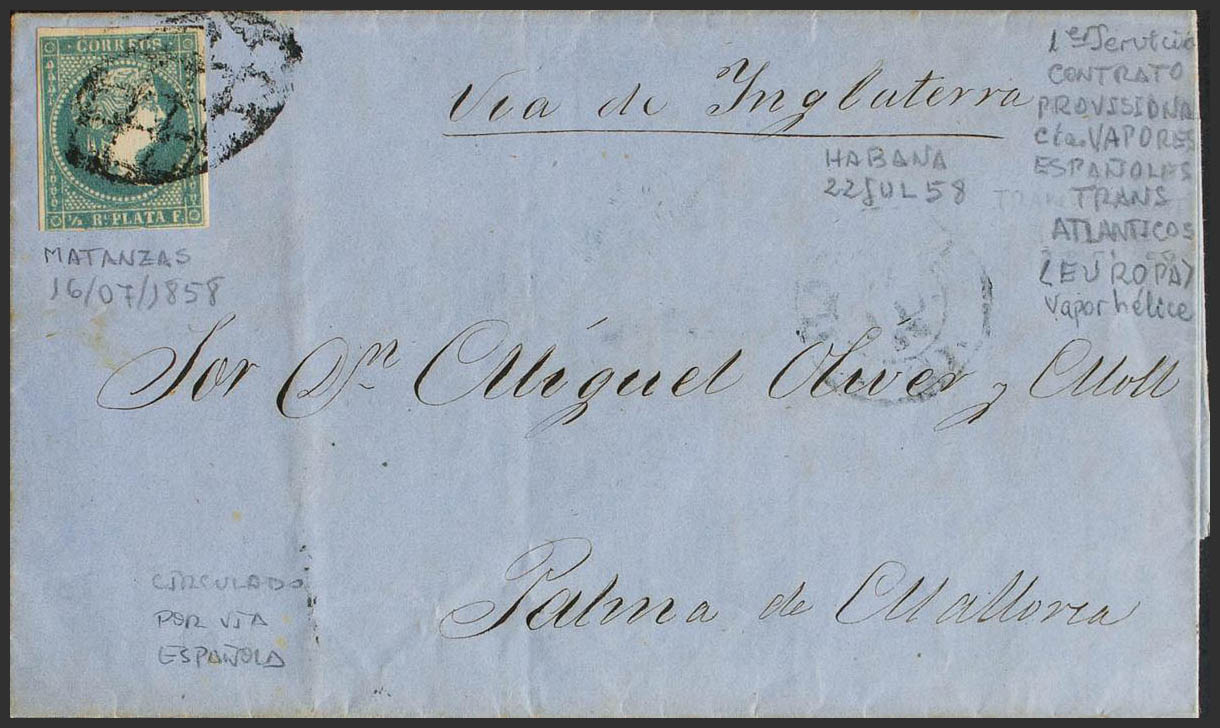 CORREOS
½ Rˡ PLATA F.
Via de Inglaterra
1er Servicio
CONTRATO
PROVISIONA
Cía. VAPORES
ESPAÑOLES
TRANS
ATLANTICOS
(EUROPA)
Vapor hélice
HABANA
22 JUL 58
MATANZAS
16/07/1858
Sor Dn Miguel Oliver y Moll
Palma de Mallorca
CIRCULADO
POR VIA
ESPAÑOLA